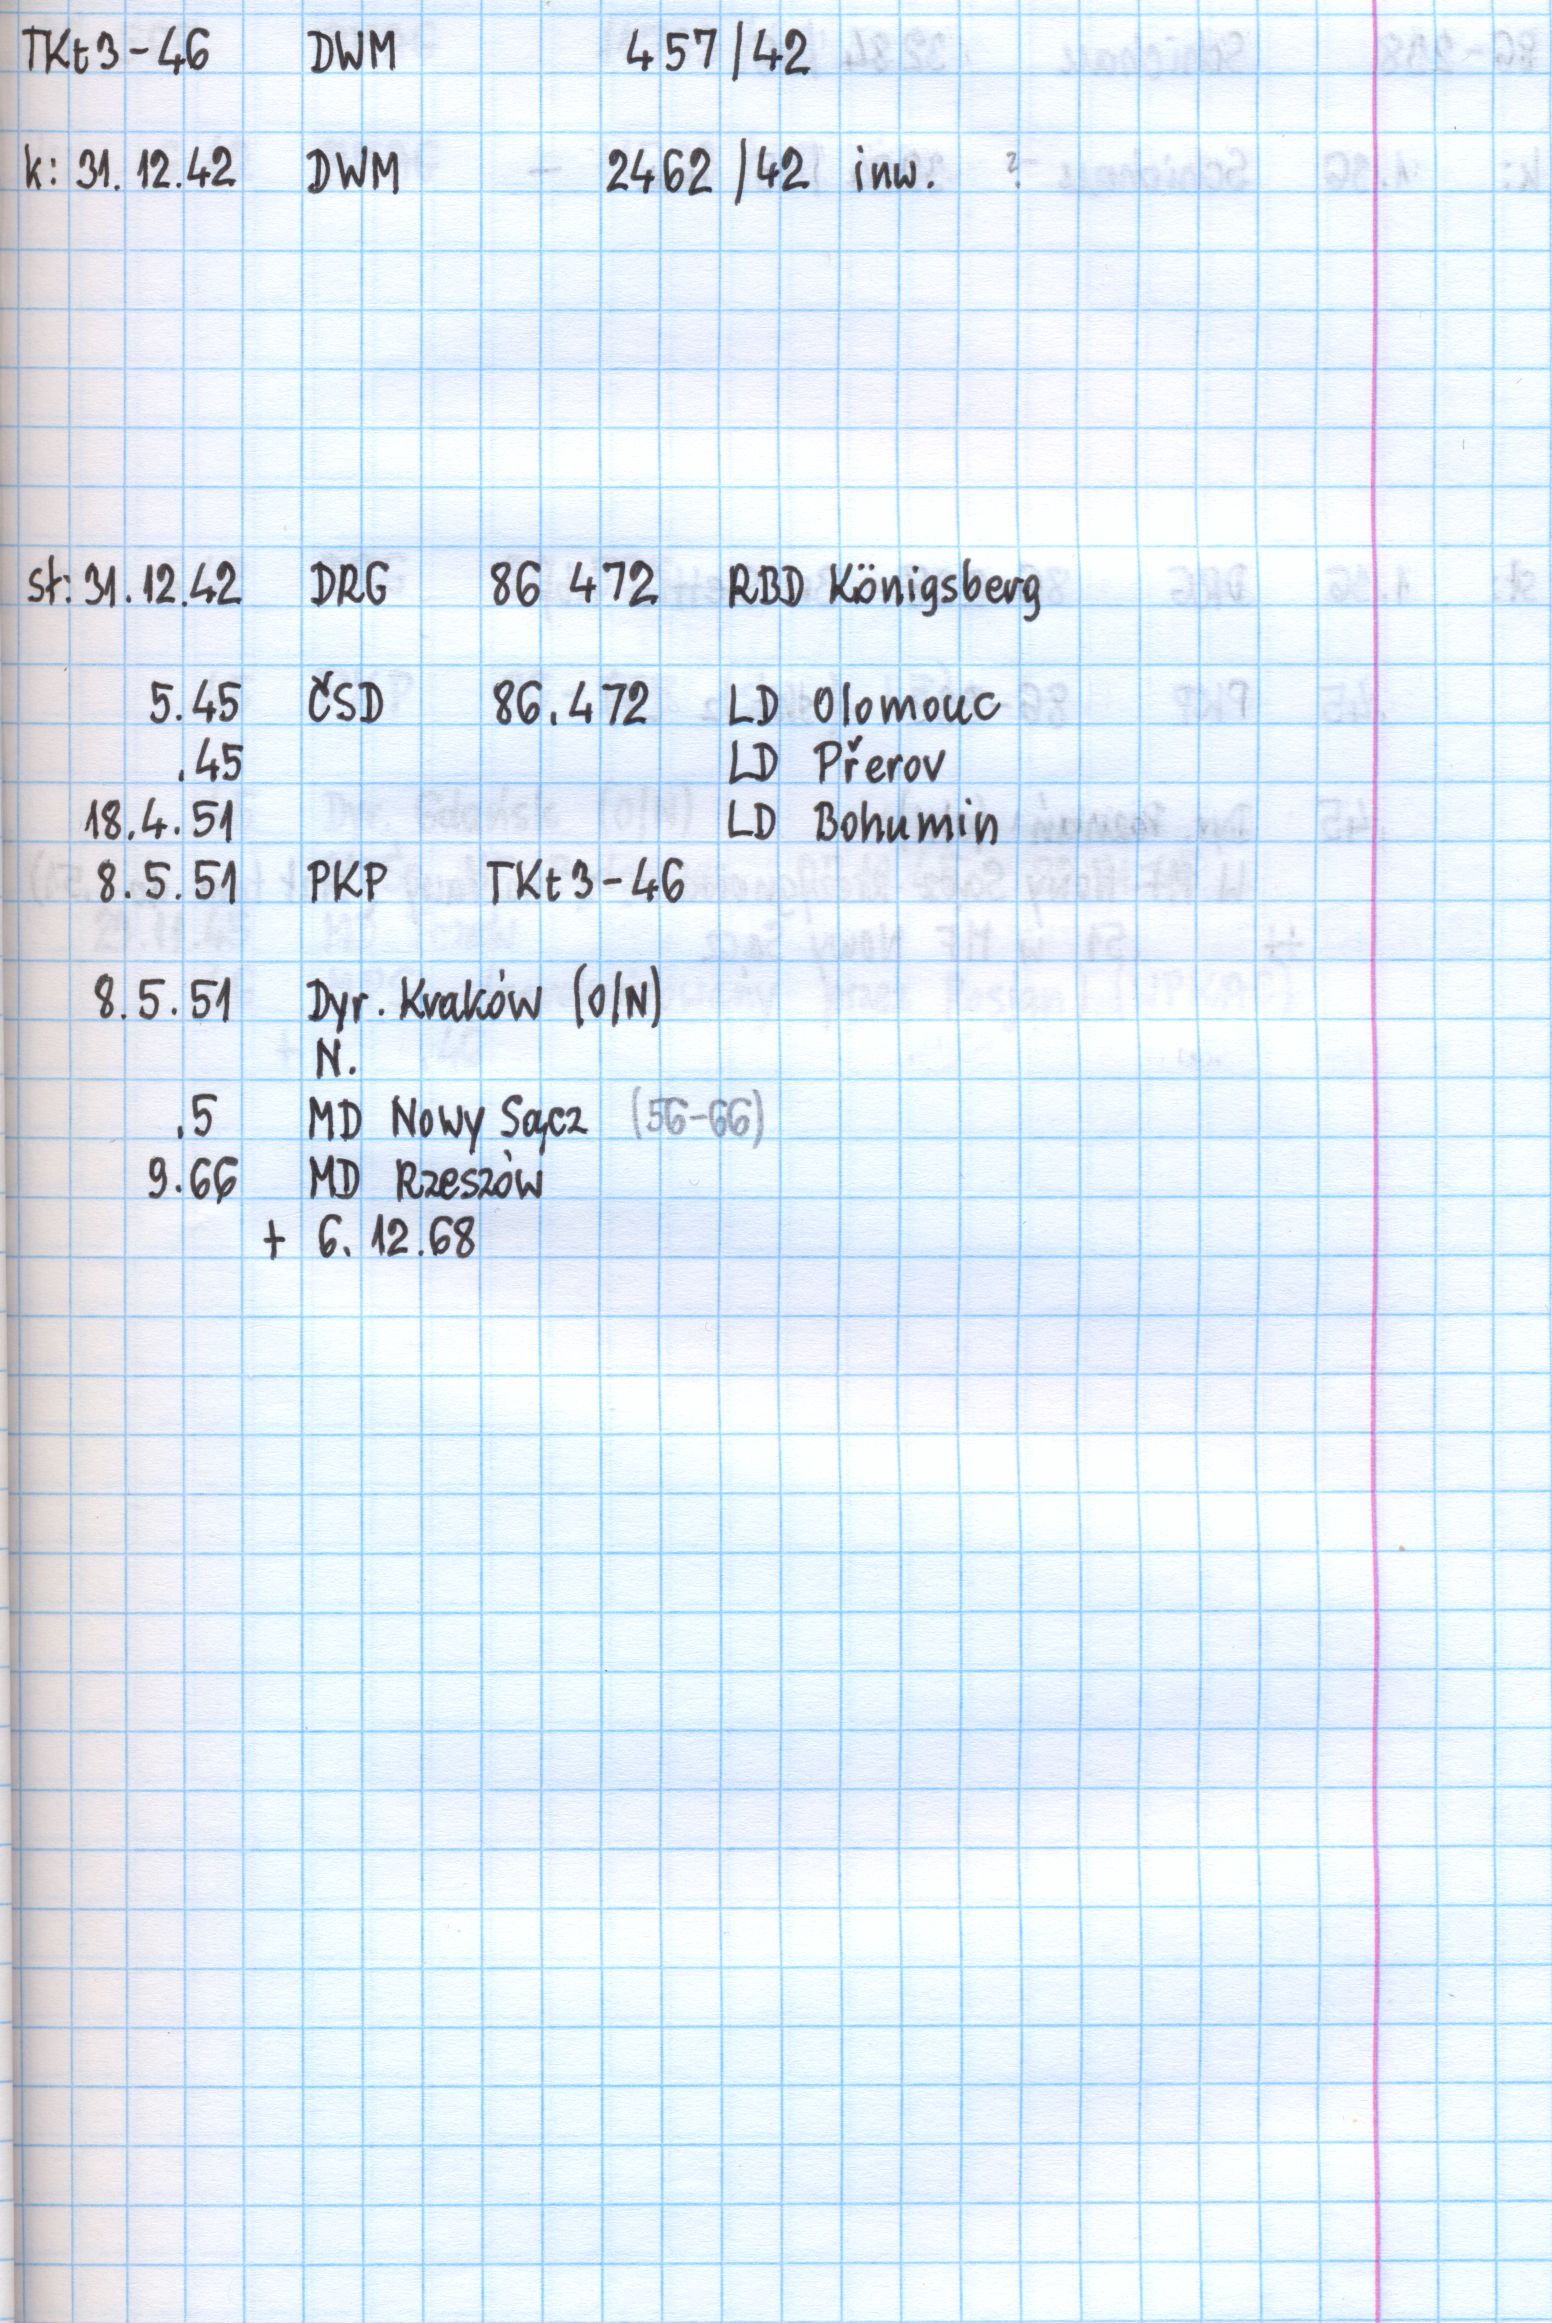 TKt3-46 DWM 457/42
k: 31.12.42 DWM 2462/42 inw. ?
st: 31.12.42 DRG 86 472 RBD Königsberg
5.45 ČSD 86.472 LD Olomouc
.45 LD Přerov
18.4.51 LD Bohumin
8.5.51 PKP TKt3-46
8.5.51 Dyr. Kraków (O/N)
N.
.5 MD Nowy Sącz (56-66)
9.66 MD Rzeszów
+ 6.12.68